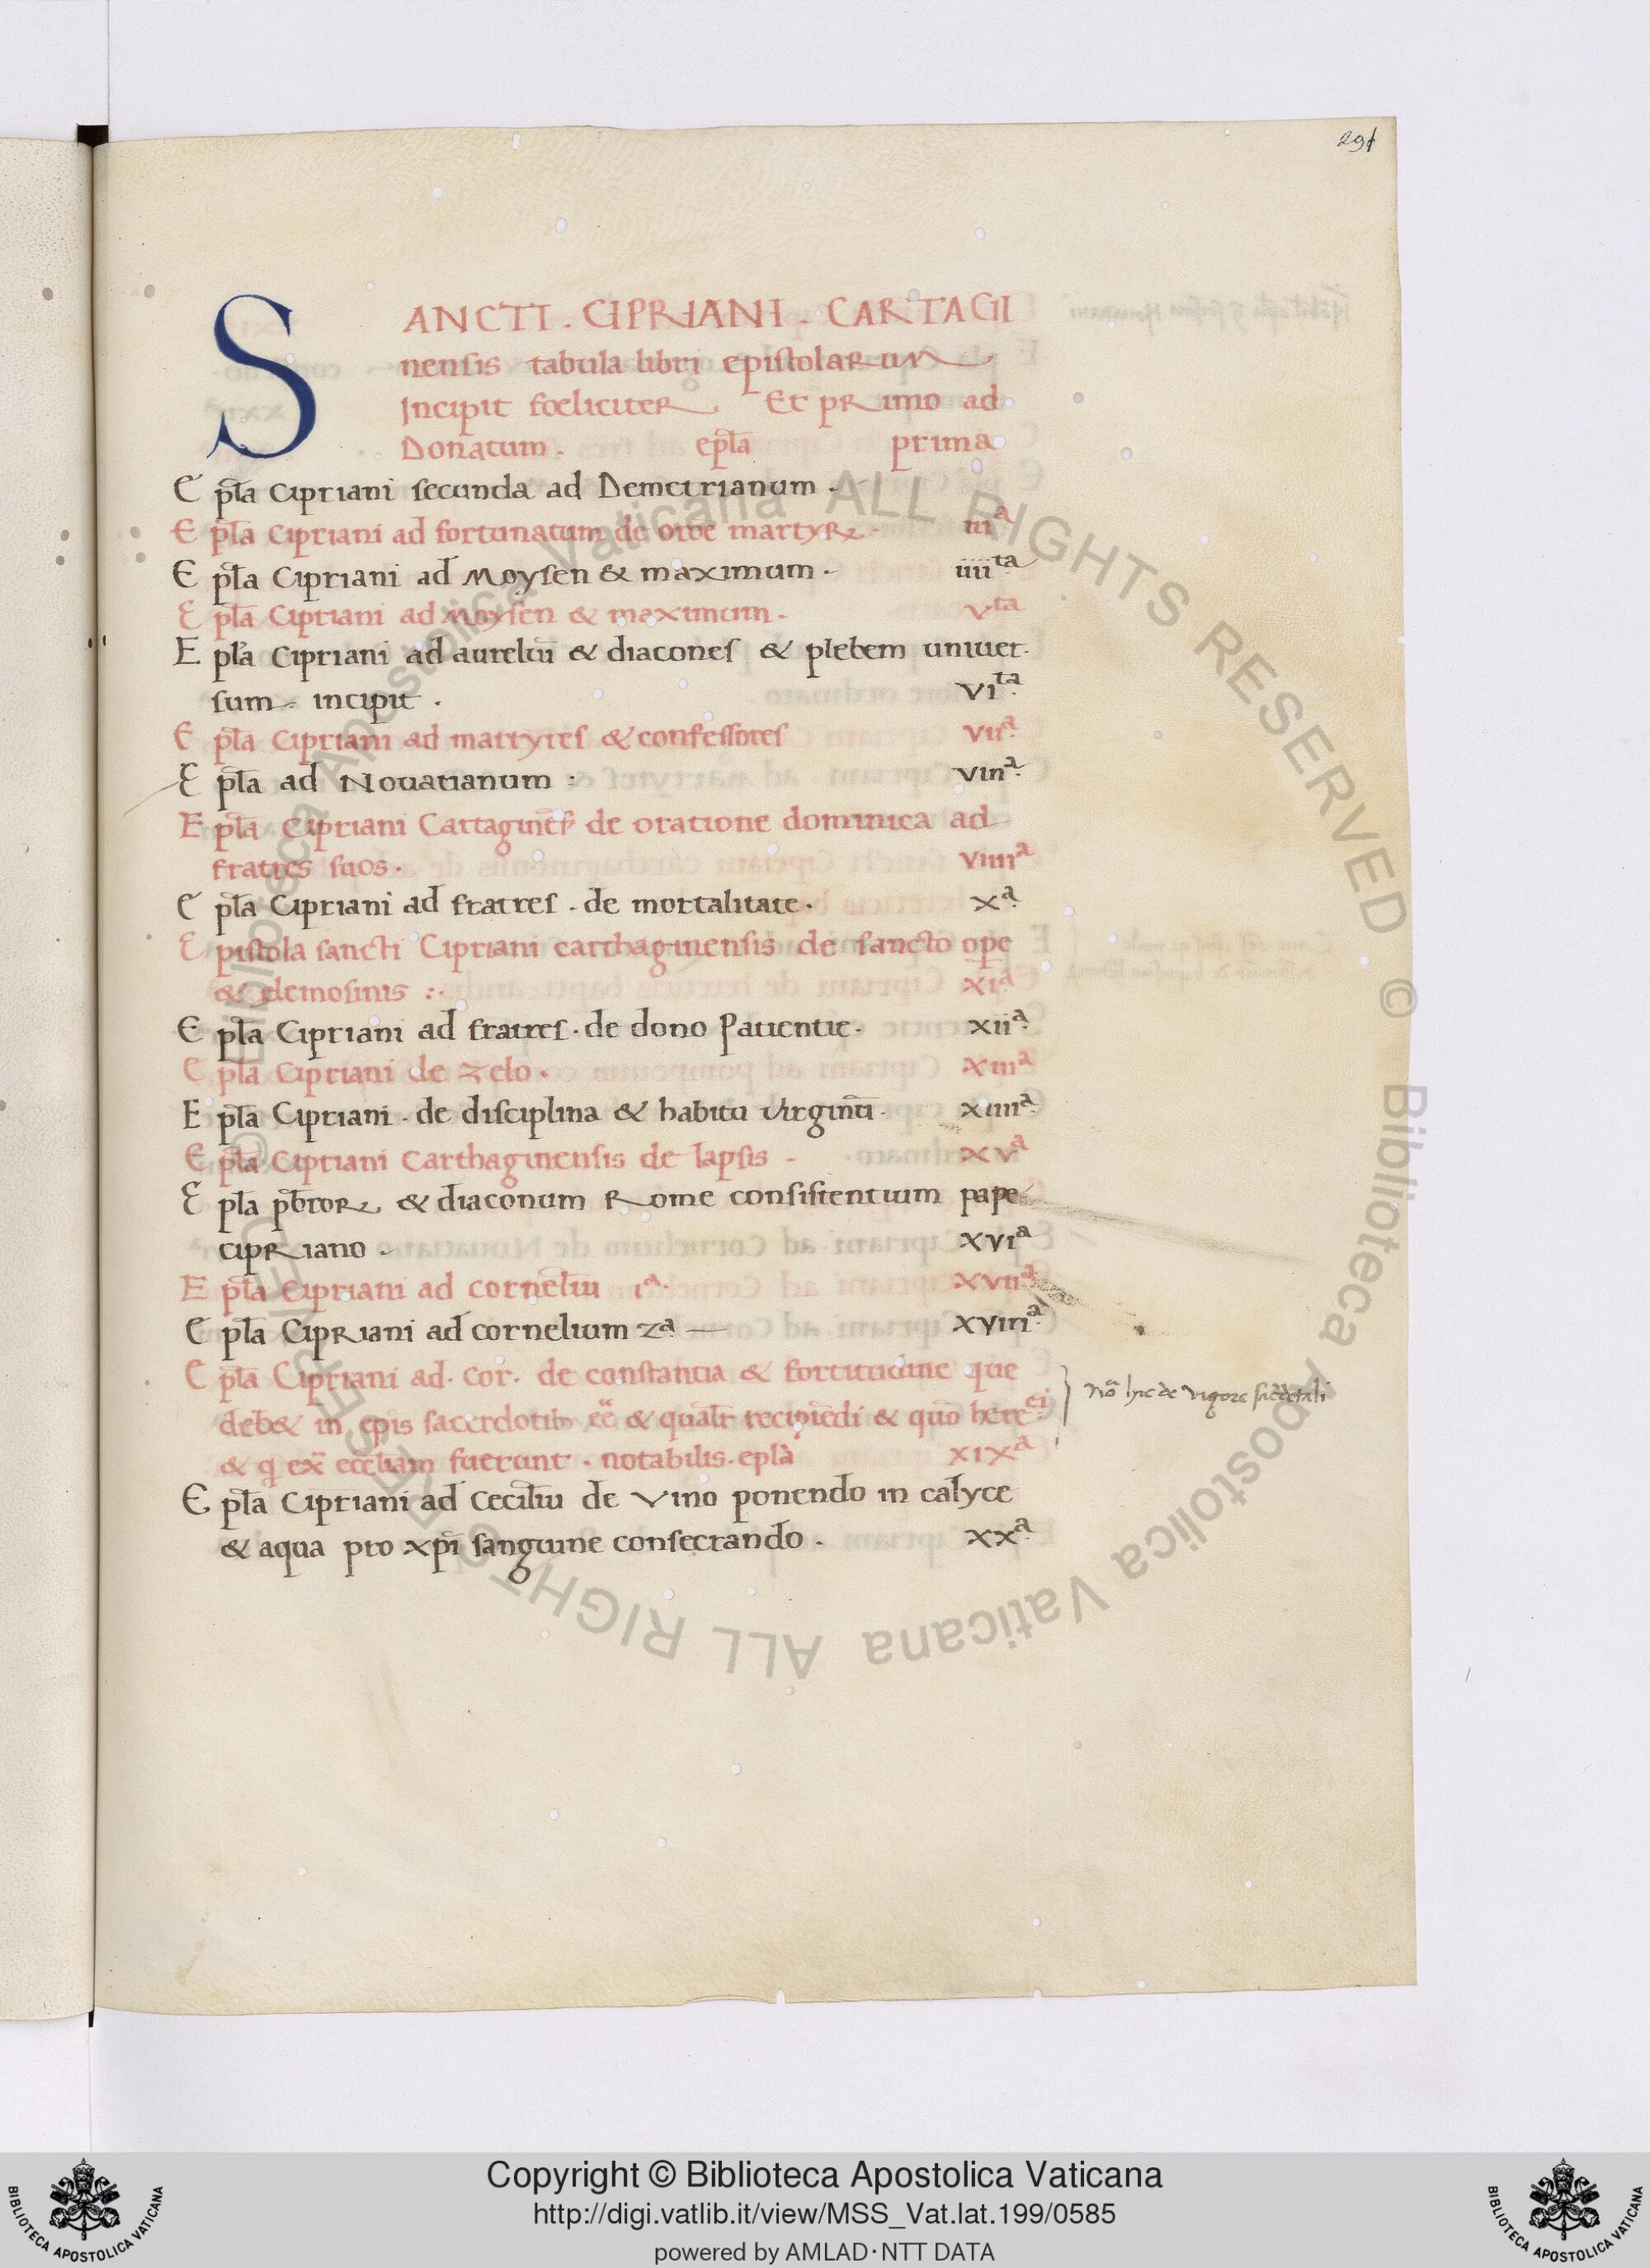 291
SANCTI . CIPRIANI . CARTAGI
nensis tabula libri epistolarum
Incipit foeliciter . Et primo ad
Donatum . epl̄a prima
E pl̄a Cipriani secunda ad Demetrianum .
E pl̄a Cipriani ad fortunatum de om̄e martyrꝝ . iiiª
E pl̄a Cipriani ad Moysen & maximum . iiiiᵗᵃ
E pl̄a Cipriani ad Moysen & maximum . vᵗᵃ
E pl̄a Cipriani ad aureliū & diacones & plebem uniuer
sum incipit . viᵗᵃ
E pl̄a Cipriani ad martyres & confessores viiª
E pl̄a ad Nouatianum : viiiª
E pl̄a Cipriani Cartagineñ de oratione dominica ad
fratres suos . viiiiª
E pl̄a Cipriani ad fratres . de mortalitate . xª
E pistola sancti Cipriani carthaginensis de sancto oꝑe
& elemosinis : xiª
E pl̄a Cipriani ad fratres . de dono Patientie . xiiª
E pl̄a Cipriani de zelo . xiiiª
E pl̄a Cipriani . de disciplina & habitu virginū . xiiiiª
E pl̄a Cipriani Carthaginensis de lapsis . xvª
E pl̄a pb̄rorꝝ & diaconum Rome consistentium pape
cipriano . xviª
E pl̄a Cipriani ad corneliū iª . xviiª
E pl̄a Cipriani ad cornelium 2ª xviiiª
E pl̄a Cipriani ad . cor . de constantia & fortitudine que
deb& in ep̄is sacerdotib; eē & qualr̄ recipiēdi & quō hereci
& q ex ecclīam fuerunt . notabilis . epl̄a xixª
Nō hic de vigore sac̄dotali
E pl̄a Cipriani ad Ceciliū de vino ponendo in calyce
& aqua pro xp̄i sanguine consecrando . xxª
© Biblioteca Apostolica Vaticana ALL RIGHTS RESERVED © Biblioteca Apostolica Vaticana ALL RIGHTS RESERVED
Copyright © Biblioteca Apostolica Vaticana
http://digi.vatlib.it/view/MSS_Vat.lat.199/0585
powered by AMLAD·NTT DATA
BIBLIOTECA APOSTOLICA VATICANA
BIBLIOTECA APOSTOLICA VATICANA